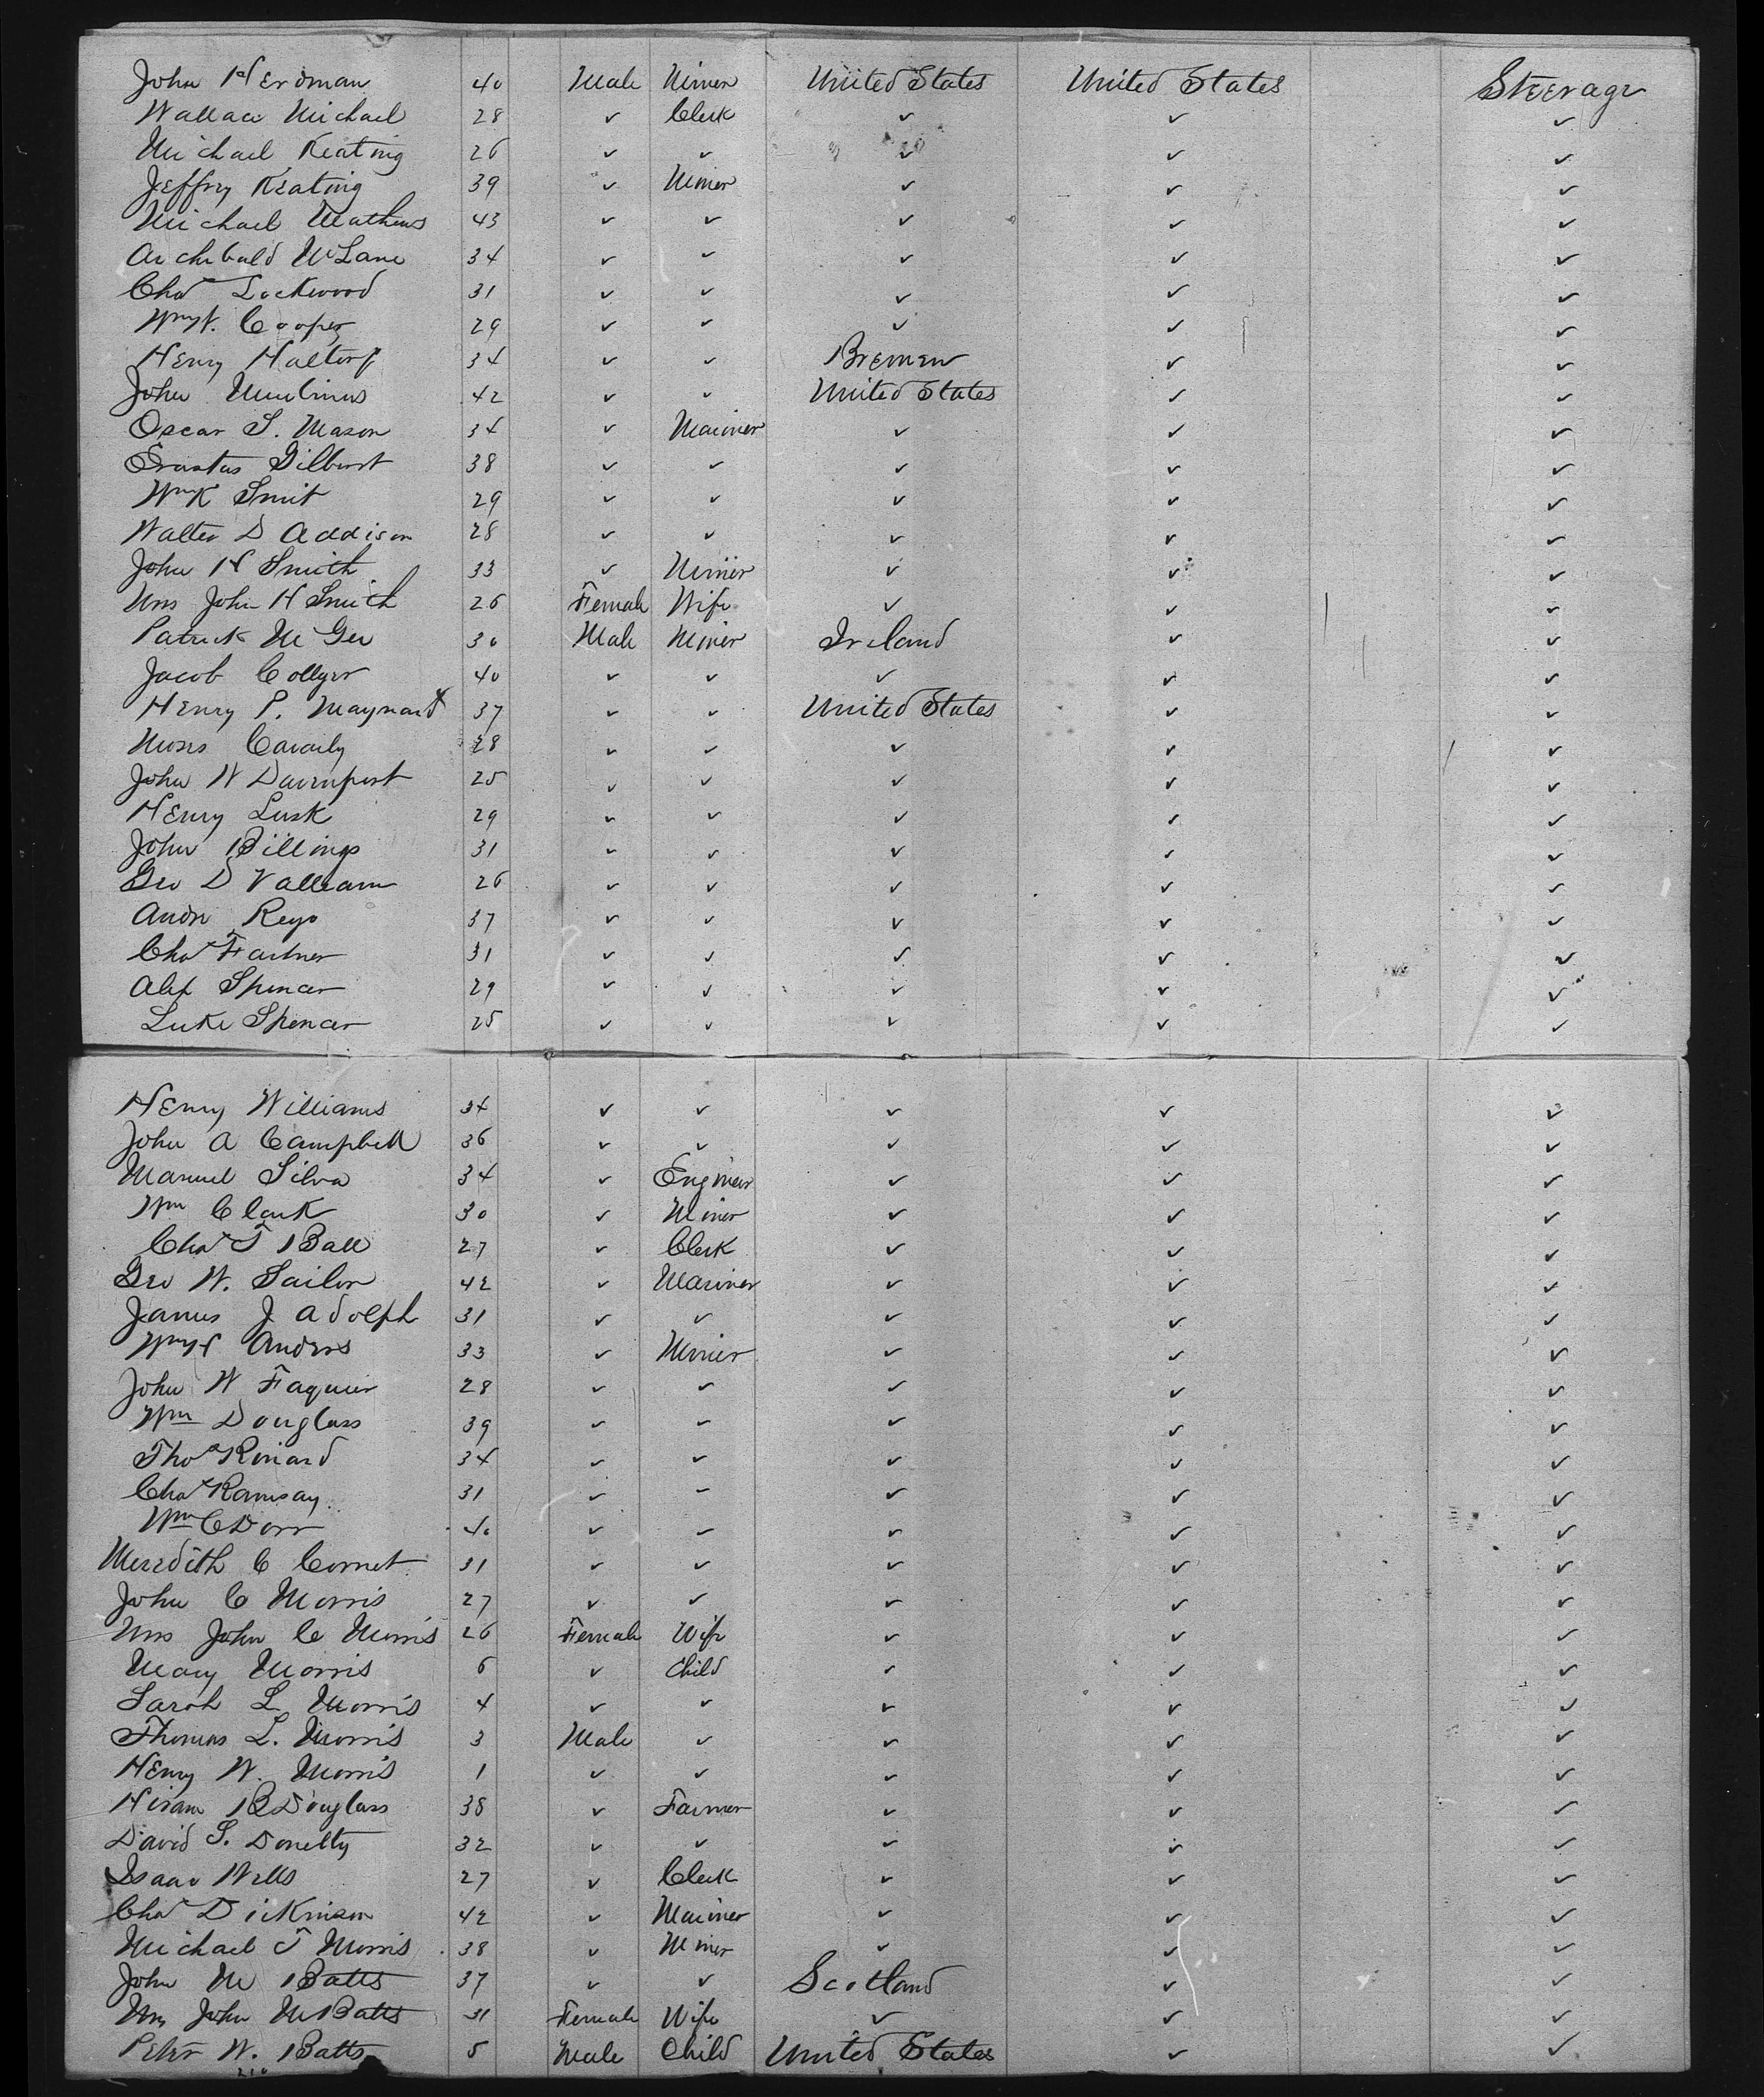 John Herdman 40 Male Miner United States United States Steerage
Wallace Michael 28 ✓ Clerk ✓ ✓ ✓
Michael Keating 26 ✓ ✓ ✓ ✓ ✓
Jeffry Keating 39 ✓ Miner ✓ ✓ ✓
Michael Mathews 43 ✓ ✓ ✓ ✓ ✓
Archibald McLane 34 ✓ ✓ ✓ ✓ ✓
Chas Lockwood 31 ✓ ✓ ✓ ✓ ✓
Wm H. Cooper 29 ✓ ✓ ✓ ✓ ✓
Henry 34 ✓ ✓ Bremen ✓ ✓
John 42 ✓ ✓ United States ✓ ✓
Oscar S. Mason 34 ✓ Mariner ✓ ✓ ✓
Erastus Gilbert 38 ✓ ✓ ✓ ✓ ✓
Wm K Smit 29 ✓ ✓ ✓ ✓ ✓
Walter D Addison 28 ✓ ✓ ✓ ✓ ✓
John H Smith 33 ✓ Miner ✓ ✓ ✓
Mrs John H Smith 26 Female Wife ✓ ✓ ✓
Patrick McGee 30 Male Miner Ireland ✓ ✓
Jacob Collyer 40 ✓ ✓ ✓ ✓ ✓
Henry P. Maynard 37 ✓ ✓ United States ✓ ✓
Moses 28 ✓ ✓ ✓ ✓ ✓
John W Davenport 25 ✓ ✓ ✓ ✓ ✓
Henry Lusk 29 ✓ ✓ ✓ ✓ ✓
John Billings 31 ✓ ✓ ✓ ✓ ✓
Geo D Valliam 26 ✓ ✓ ✓ ✓ ✓
Andr Reyo 37 ✓ ✓ ✓ ✓ ✓
Chas 31 ✓ ✓ ✓ ✓ ✓
Alex Spencer 29 ✓ ✓ ✓ ✓ ✓
Luke Spencer 25 ✓ ✓ ✓ ✓ ✓
Henry Williams 34 ✓ ✓ ✓ ✓ ✓
John A Campbell 36 ✓ ✓ ✓ ✓ ✓
Manuel Silva 34 ✓ Engineer ✓ ✓ ✓
Wm Clark 30 ✓ Miner ✓ ✓ ✓
Chas T Ball 27 ✓ Clerk ✓ ✓ ✓
Geo W. Sailor 42 ✓ Mariner ✓ ✓ ✓
James J Adolph 31 ✓ ✓ ✓ ✓ ✓
Wm H Andros 33 ✓ Miner ✓ ✓ ✓
John W Faquier 28 ✓ ✓ ✓ ✓ ✓
Wm Douglass 39 ✓ ✓ ✓ ✓ ✓
Thos Rinard 34 ✓ ✓ ✓ ✓ ✓
Chas Ramsay 31 ✓ ✓ ✓ ✓ ✓
Wm C Dorr 40 ✓ ✓ ✓ ✓ ✓
Meredith C Cornet 31 ✓ ✓ ✓ ✓ ✓
John C Morris 27 ✓ ✓ ✓ ✓ ✓
Mrs John C Morris 26 Female Wife ✓ ✓ ✓
Mary Morris 6 ✓ Child ✓ ✓ ✓
Sarah L Morris 4 ✓ ✓ ✓ ✓ ✓
Thomas L. Morris 3 Male ✓ ✓ ✓ ✓
Henry W. Morris 1 ✓ ✓ ✓ ✓ ✓
Hiram B Douglass 38 ✓ Farmer ✓ ✓ ✓
David S. Donelty 32 ✓ ✓ ✓ ✓ ✓
Isaac Wells 27 ✓ Clerk ✓ ✓ ✓
Chas Dickinson 42 ✓ Mariner ✓ ✓ ✓
Michael T Morris 38 ✓ Miner ✓ ✓ ✓
John M Batts 37 ✓ ✓ Scotland ✓ ✓
Mrs John M Batts 31 Female Wife ✓ ✓ ✓
Peter W. Batts 5 Male Child United States ✓ ✓